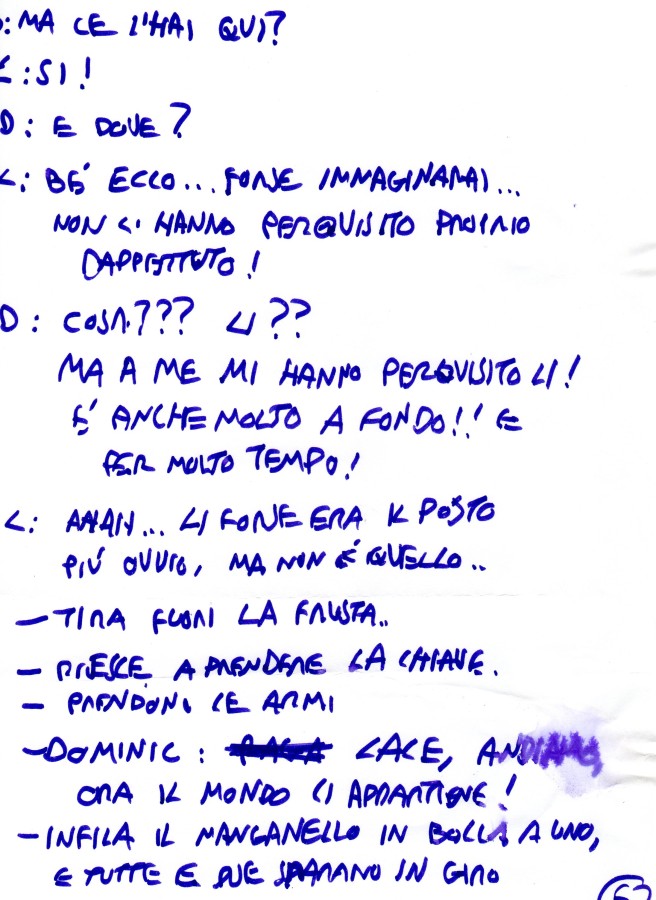 D: MA CE L'HAI QUI?
L: SI!
D: E DOVE?
L: BE' ECCO... FORSE IMMAGINARAI...
NON CI HANNO PERQUISITO PROPRIO
DAPPERTUTTO!
D: COSA??? LI??
MA A ME MI HANNO PERQUISITO LI!
E' ANCHE MOLTO A FONDO!! E
PER MOLTO TEMPO!
L: AHAH... LI FORSE ERA IL POSTO
PIÚ OVVIO, MA NON É QUELLO..
— TIRA FUORI LA FRUSTA..
— RIESCE A PRENDERE LA CHIAVE.
— PRENDONO LE ARMI
— DOMINIC: LACE, ANDIAMO,
ORA IL MONDO CI APPARTIENE!
— INFILA IL MANGANELLO IN BOCCA A UNO,
E TUTTE E DUE SPARANO IN GIRO